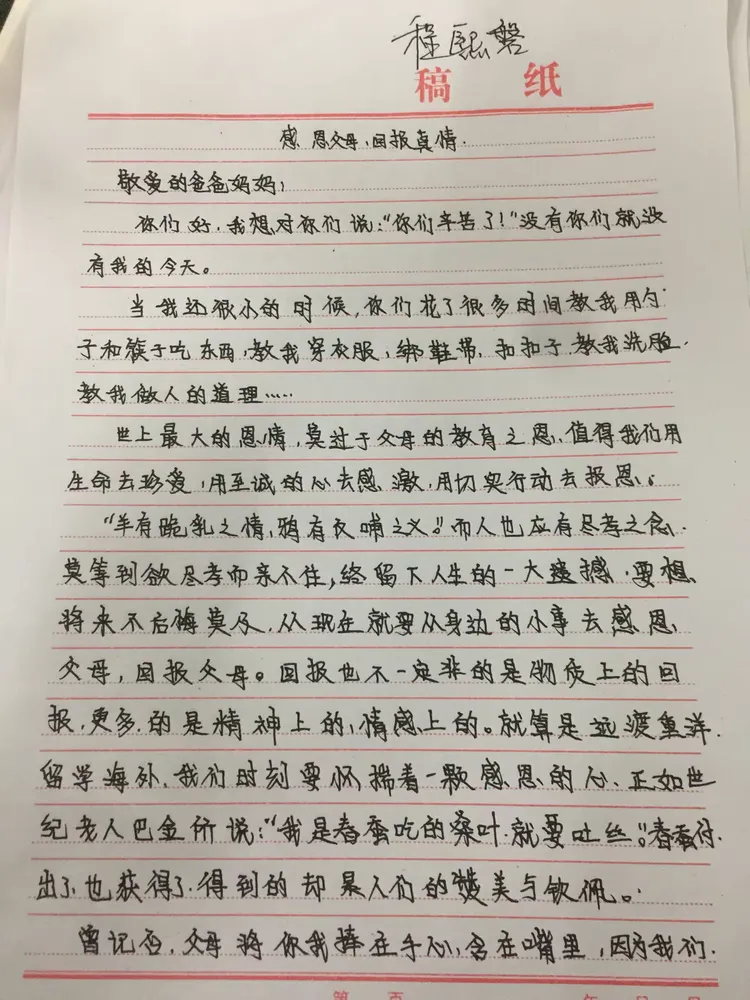 程熙磐
稿 纸
感恩父母,回报真情.
敬爱的爸爸妈妈:
你们好.我想对你们说:“你们辛苦了!”没有你们就没
有我的今天。
当我还很小的时候,你们花了很多时间教我用勺
子和筷子吃东西,教我穿衣服,绑鞋带,扣扣子.教我洗脸.
教我做人的道理……
世上最大的恩情,莫过于父母的教育之恩.值得我们用
生命去珍爱,用至诚的心去感激,用切实行动去报恩。
“羊有跪乳之情,鸦有反哺之义。”而人也应有尽孝之念.
莫等到欲尽孝而亲不住,终留下人生的一大遗憾.要想
将来不后悔莫及,从现在就要从身边的小事去感恩
父母,回报父母。回报也不一定非的是物质上的回
报.更多的是精神上的,情感上的。就算是远渡重洋.
留学海外.我们时刻要怀揣着一颗感恩的心.正如世
纪老人巴金所说:“我是春蚕吃的桑叶.就要吐丝。”春蚕付
出了.也获得了.得到的却是人们的赞美与钦佩。
曾记否.父母将你我捧在手心,含在嘴里,因为我们.
第 页
年 月 日